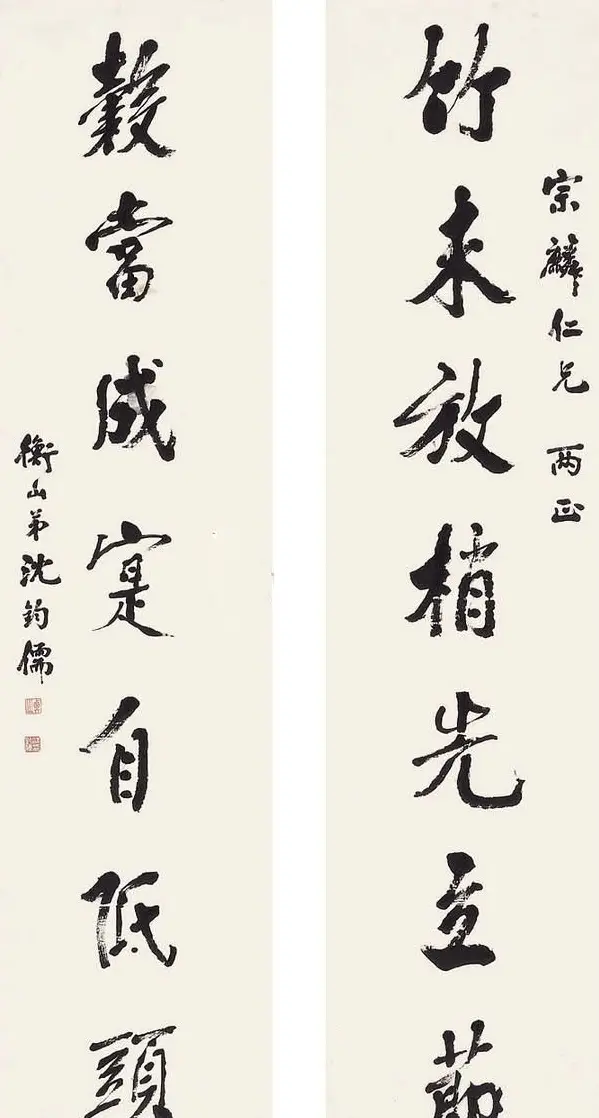 宗麟仁兄 两正
竹未放梢先立節
穀當成寔自低頭
衡山弟沈鈞儒